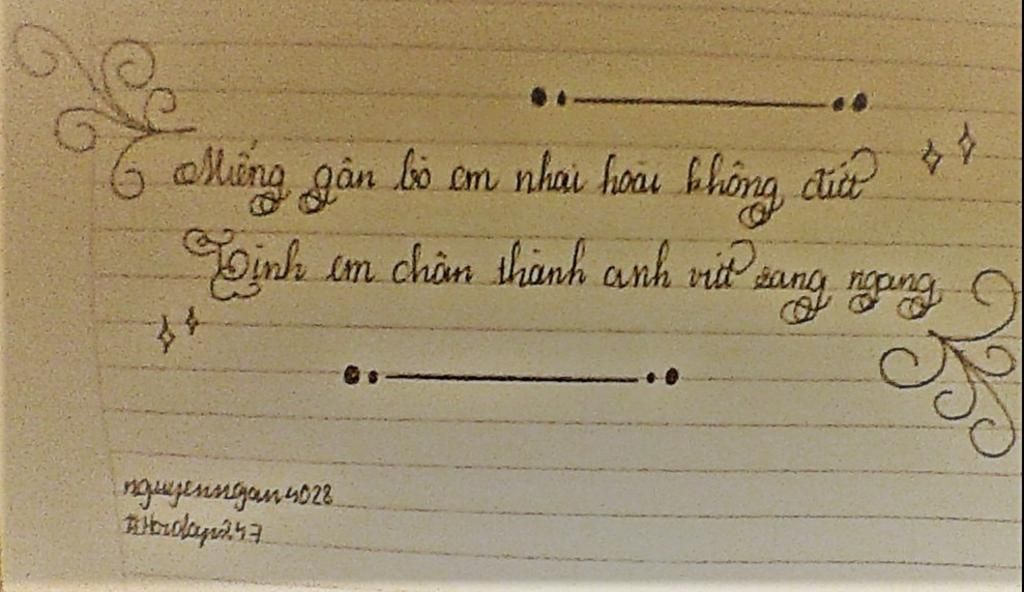 Miếng gân bò em nhai hoài không đứt
Tình em chân thành anh vứt sang ngang
nguyenngan4028
#Hoidap247